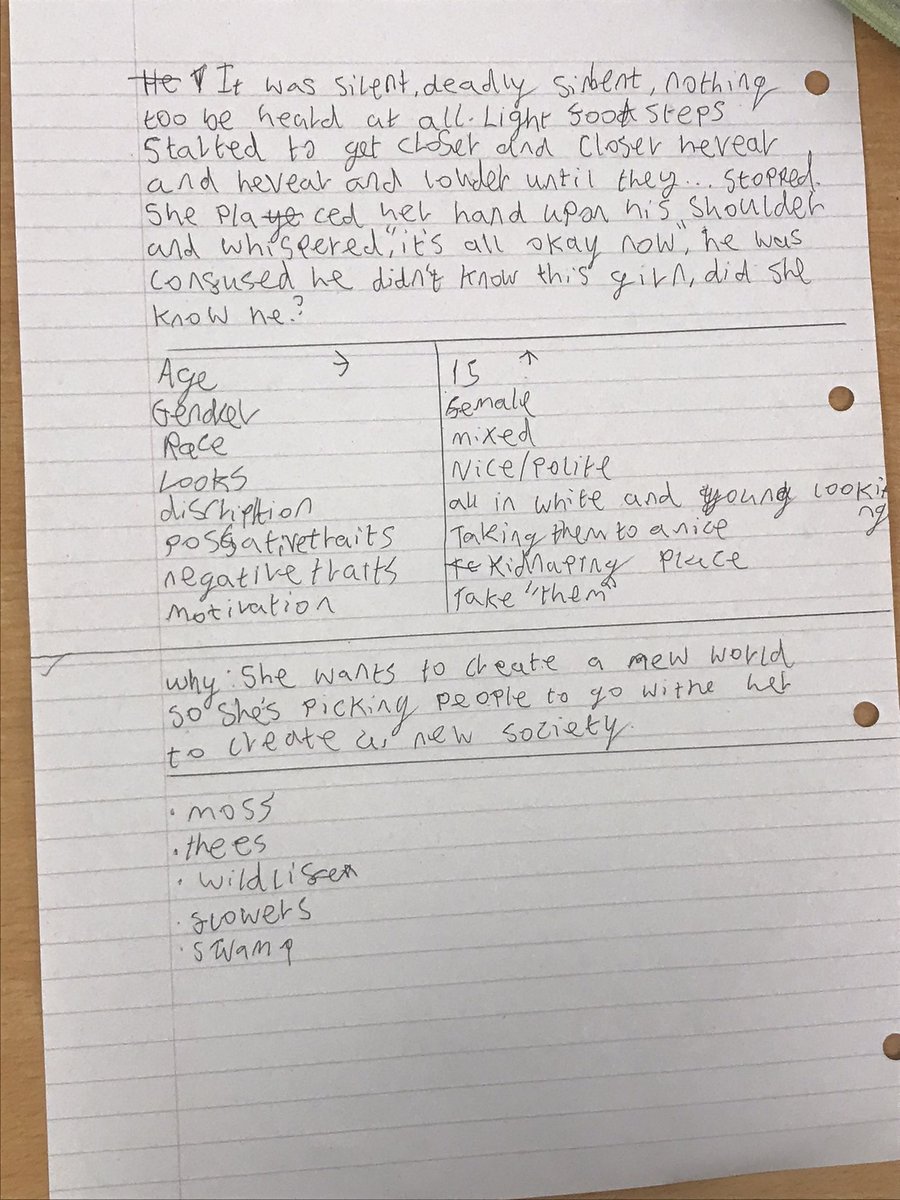 He It was silent, deadly silent, nothing
too be heard at all. Light footsteps
Started to get closer and closer nevear
and nevear and louder until they... stopped.
She placed her hand upon his shoulder
and whispered, "it's all okay now", he was
confused he didn't know this girl, did she
know he?
Age → 15 ↑
Gender female
Race mixed
Looks Nice/Polite
discription all in white and young looking
posatative traits Taking them to a nice
negative traits Kidnaping place
motivation Take "them"
why: She wants to create a new world
so she's picking people to go withe her
to create a new society.
· moss
· trees
· wildlife
· flowers
· swamp